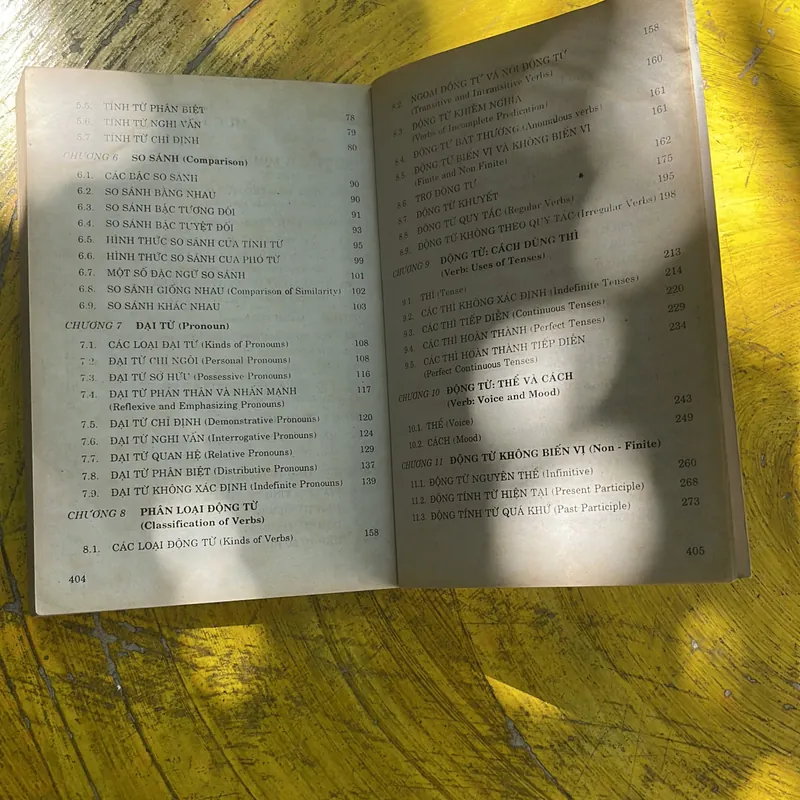 5.5. TÍNH TỪ PHÂN BIỆT 78
5.6. TÍNH TỪ NGHI VẤN 79
5.7. TÍNH TỪ CHỈ ĐỊNH 80
CHƯƠNG 6 SO SÁNH (Comparison)
6.1. CÁC BẬC SO SÁNH 90
6.2. SO SÁNH BẰNG NHAU 90
6.3. SO SÁNH BẬC TƯƠNG ĐỐI 91
6.4. SO SÁNH BẬC TUYỆT ĐỐI 93
6.5. HÌNH THỨC SO SÁNH CỦA TÍNH TỪ 95
6.6. HÌNH THỨC SO SÁNH CỦA PHÓ TỪ 99
6.7. MỘT SỐ ĐẶC NGỮ SO SÁNH 101
6.8. SO SÁNH GIỐNG NHAU (Comparison of Similarity) 102
6.9. SO SÁNH KHÁC NHAU 103
CHƯƠNG 7 ĐẠI TỪ (Pronoun)
7.1. CÁC LOẠI ĐẠI TỪ (Kinds of Pronouns) 108
7.2. ĐẠI TỪ CHỈ NGÔI (Personal Pronouns) 108
7.3. ĐẠI TỪ SỞ HỮU (Possessive Pronouns) 116
7.4. ĐẠI TỪ PHẢN THÂN VÀ NHẤN MẠNH 117
(Reflexive and Emphasizing Pronouns)
7.5. ĐẠI TỪ CHỈ ĐỊNH (Demonstrative Pronouns) 120
7.6. ĐẠI TỪ NGHI VẤN (Interrogative Pronouns) 124
7.7. ĐẠI TỪ QUAN HỆ (Relative Pronouns) 129
7.8. ĐẠI TỪ PHÂN BIỆT (Distributive Pronouns) 137
7.9. ĐẠI TỪ KHÔNG XÁC ĐỊNH (Indefinite Pronouns) 139
CHƯƠNG 8 PHÂN LOẠI ĐỘNG TỪ
(Classification of Verbs)
8.1. CÁC LOẠI ĐỘNG TỪ (Kinds of Verbs) 158
404
8.2. NGOẠI ĐỘNG TỪ VÀ NỘI ĐỘNG TỪ 158
(Transitive and Intransitive Verbs)
8.3. ĐỘNG TỪ KHIẾM NGHĨA 160
(Verbs of Incomplete Predication)
8.4. ĐỘNG TỪ BẤT THƯỜNG (Anomalous verbs) 161
8.5. ĐỘNG TỪ BIẾN VỊ VÀ KHÔNG BIẾN VỊ 161
(Finite and Non Finite)
8.6 TRỢ ĐỘNG TỪ 162
8.7 ĐỘNG TỪ KHUYẾT 175
8.8 ĐỘNG TỪ QUY TẮC (Regular Verbs) 195
8.9. ĐỘNG TỪ KHÔNG THEO QUY TẮC (Irregular Verbs) 198
CHƯƠNG 9 ĐỘNG TỪ: CÁCH DÙNG THÌ
(Verb: Uses of Tenses)
9.1. THÌ (Tense) 213
9.2. CÁC THÌ KHÔNG XÁC ĐỊNH (Indefinite Tenses) 214
9.3. CÁC THÌ TIẾP DIỄN (Continuous Tenses) 220
9.4. CÁC THÌ HOÀN THÀNH (Perfect Tenses) 229
9.5. CÁC THÌ HOÀN THÀNH TIẾP DIỄN 234
(Perfect Continuous Tenses)
CHƯƠNG 10 ĐỘNG TỪ: THỂ VÀ CÁCH
(Verb: Voice and Mood)
10.1. THỂ (Voice) 243
10.2. CÁCH (Mood) 249
CHƯƠNG 11 ĐỘNG TỪ KHÔNG BIẾN VỊ (Non - Finite)
11.1. ĐỘNG TỪ NGUYÊN THỂ (Infinitive) 260
11.2. ĐỘNG TÍNH TỪ HIỆN TẠI (Present Participle) 268
11.3. ĐỘNG TÍNH TỪ QUÁ KHỨ (Past Participle) 273
405